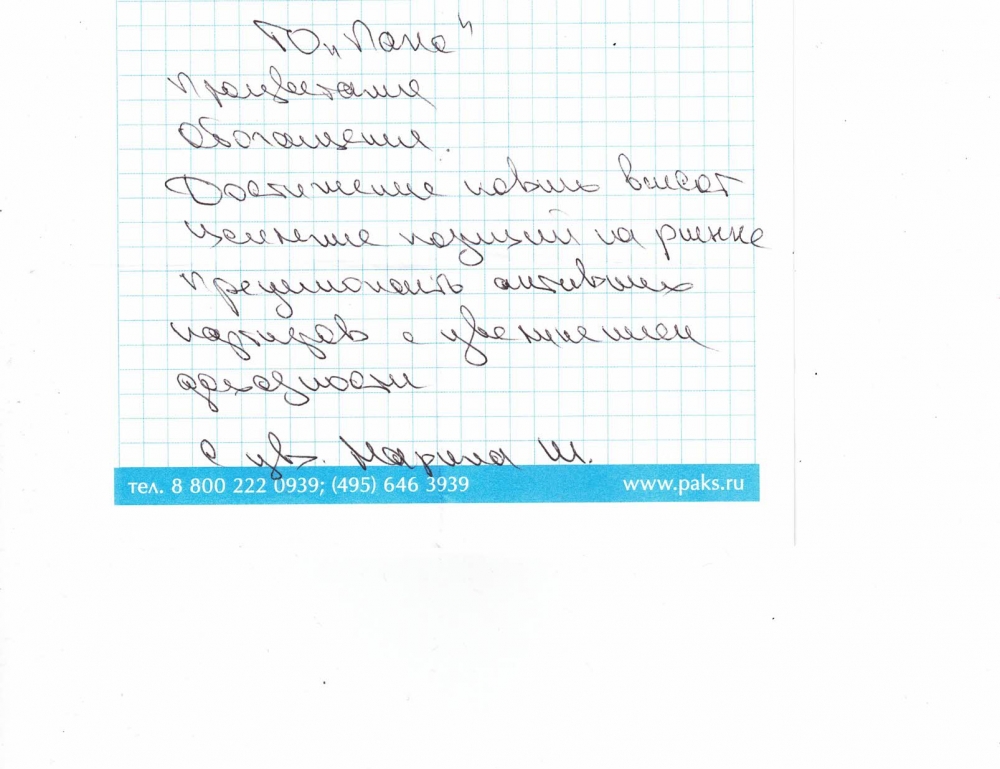 ТО „Пакс"
Процветания
Обогащения.
Достижение новых высот
позиций на рынке
активных
партнеров с увеличением
доходности
С ув. Марина Ш.
тел. 8 800 222 0939; (495) 646 3939
www.paks.ru